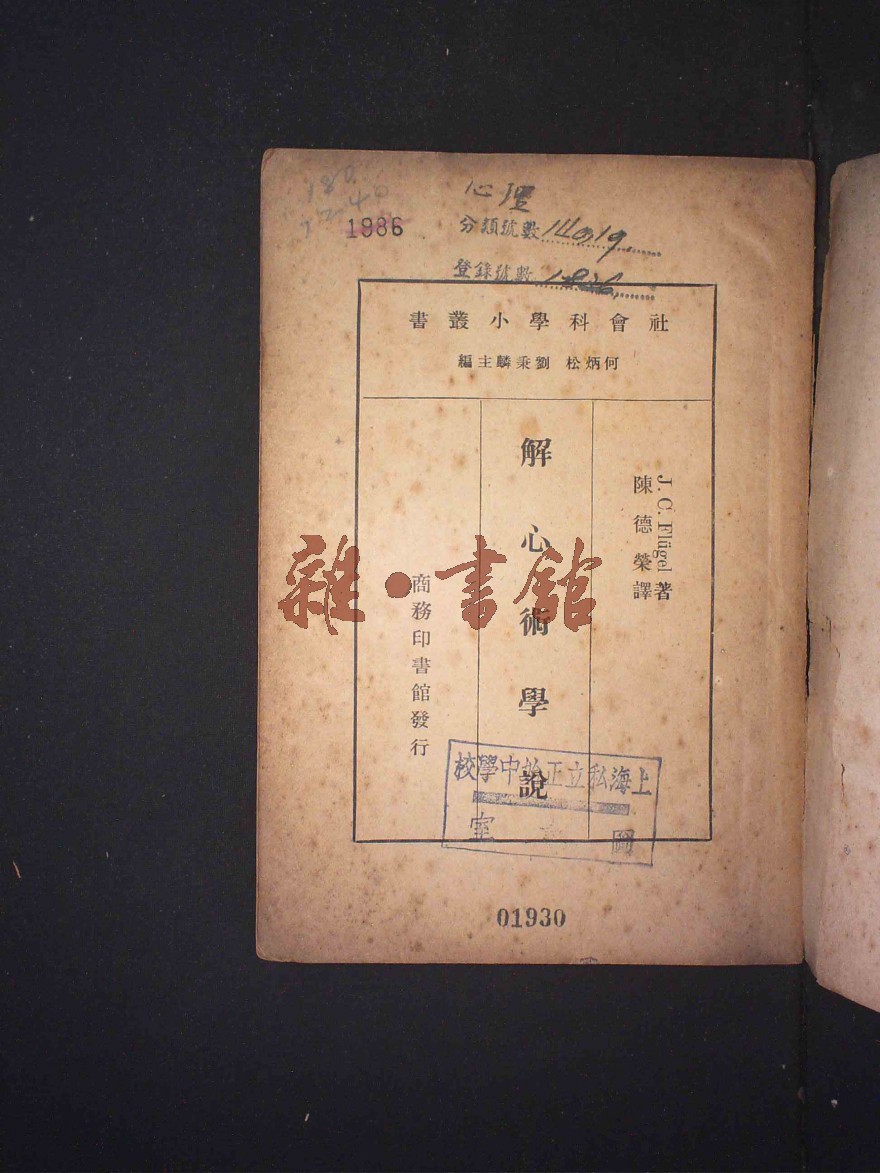 心理
1986
分類號數
登錄號數
社會科學小叢書
何炳松 劉秉麟主編
J. C. Flügel 著
陳德榮譯
解心術學說
商務印書館發行
雜·書館
上海私立正始中學校
圖書室
01930